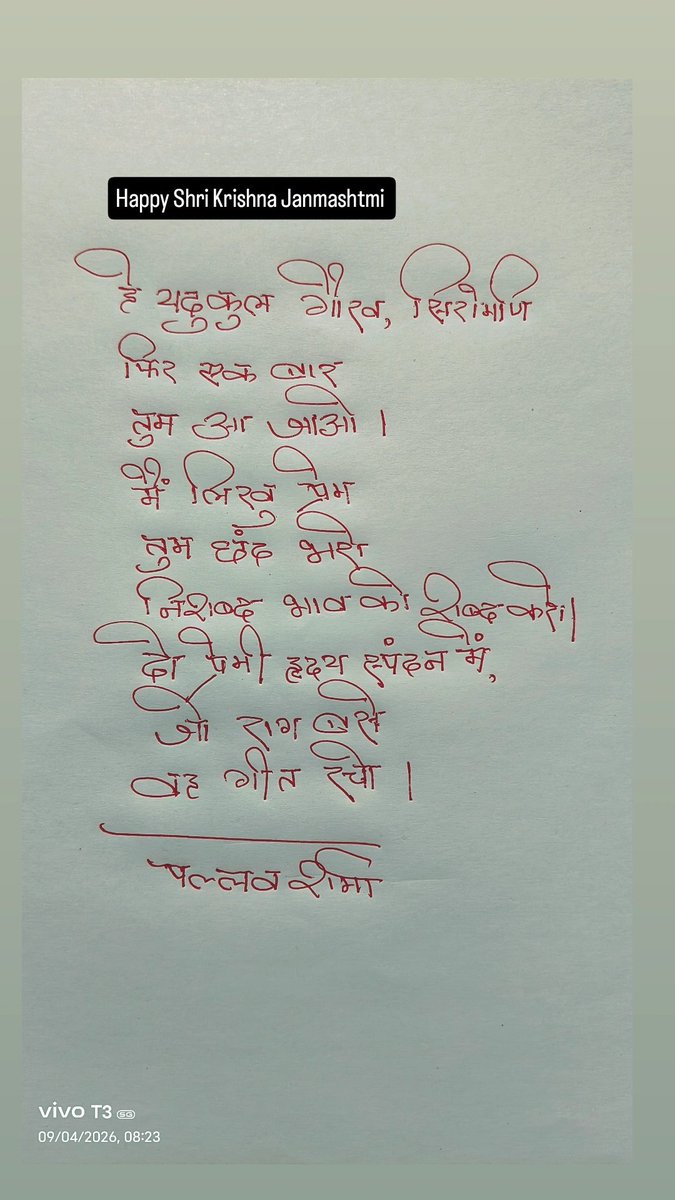 Happy Shri Krishna Janmashtmi
हे यदुकुल गौरव, सिरोमणि
फिर एक बार
तुम आ जाओ ।
मैं लिखु प्रेम
तुम छंद भरो
निशब्द भाव को शब्द करो।
दो प्रेमी हृदय स्पंदन में,
जो राग बसे
वह गीत रचो ।
पल्लव शर्मा
vivo T3 5G
09/04/2026, 08:23